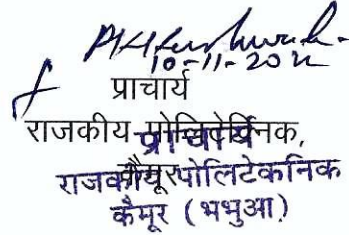 10-11-2022
प्राचार्य
राजकीय पोलिटेकनिक,
प्राचार्य
कैमूर
राजकीय पोलिटेकनिक
कैमूर (भभुआ)